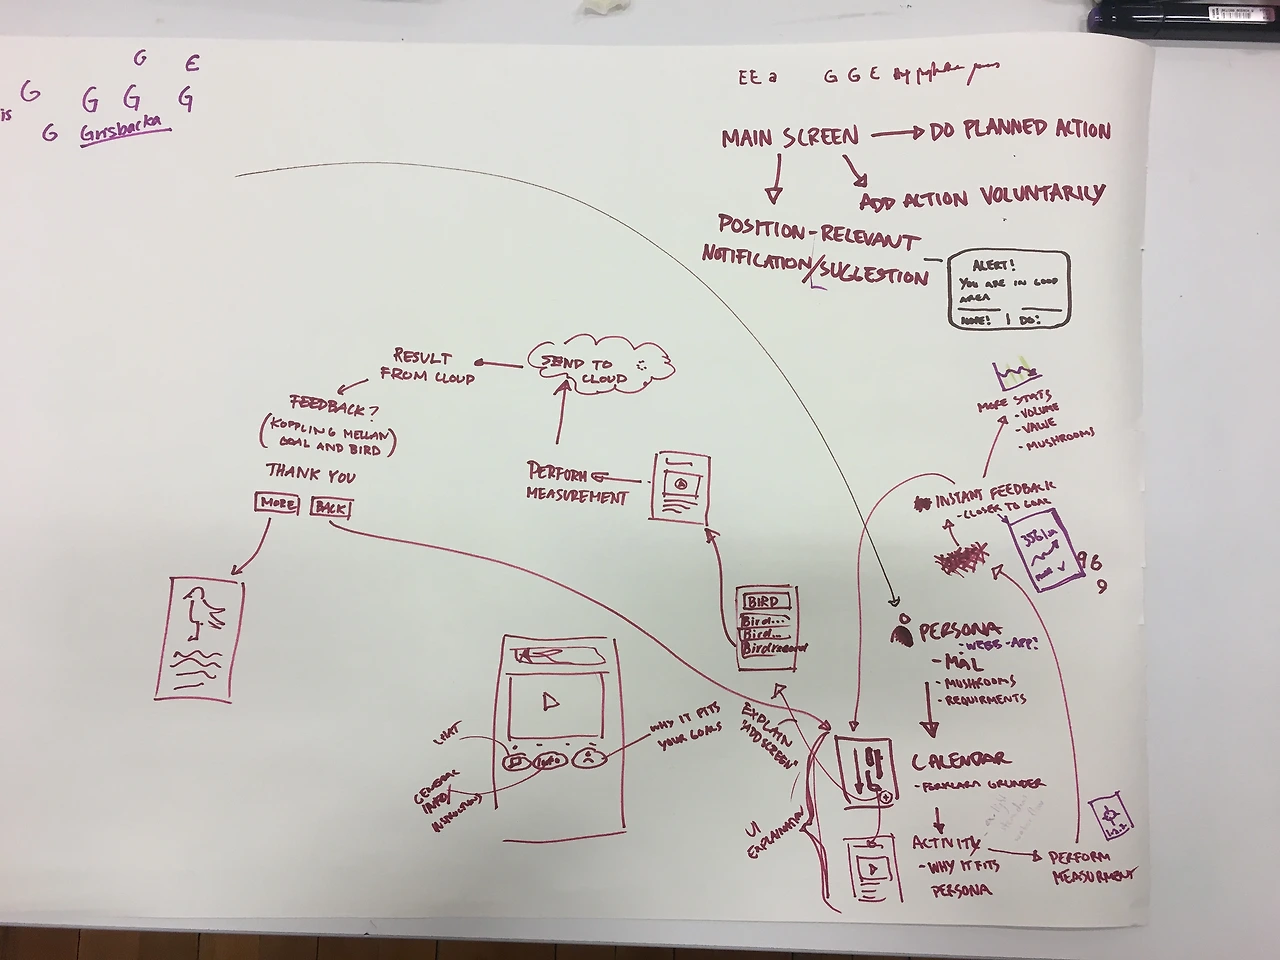 G E
is G G G G
G Grisbacka
EE a G G E
MAIN SCREEN DO PLANNED ACTION
ADD ACTION VOLUNTARILY
POSITION-RELEVANT
NOTIFICATION/SUGGESTION
ALERT!
YOU ARE IN GOOD
AREA
MORE! | DO!
SEND TO
CLOUD
RESULT
FROM CLOUD
FEEDBACK?
(KOPPLING MELLAN
GOAL AND BIRD)
THANK YOU
MORE BACK
PERFORM
MEASUREMENT
MORE STATS
- VOLUME
- VALUE
- MUSHROOMS
INSTANT FEEDBACK
- CLOSER TO GOAL
96
9
BIRD
Bird...
Bird...
Bird record
PERSONA
- WEBB-APP?
- MÅL
- MUSHROOMS
- REQUIRMENTS
WHAT
INFO
GENERAL
INFO/
INSTRUCTIONS
WHY IT FITS
YOUR GOALS
EXPLAIN
"ADD SCREEN"
UI
EXPLAINATION
CALENDAR
- FÖRKLARA GRUNDER
ACTIVITY
- WHY IT FITS
PERSONA
PERFORM
MEASURMENT
1.2.2